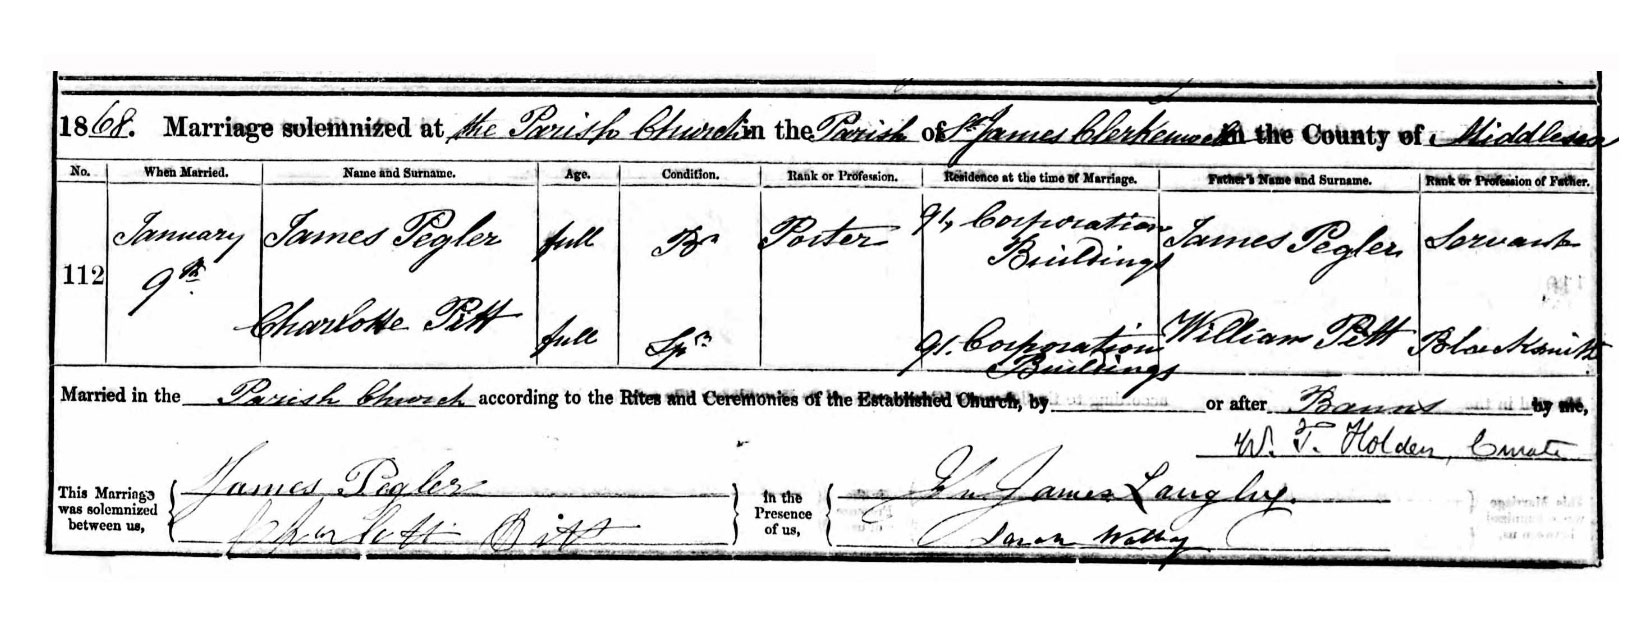 1868. Marriage solemnized at the Parish Church in the Parish of St James Clerkenwell in the County of Middlesex
No. When Married. Name and Surname. Age. Condition. Rank or Profession. Residence at the time of Marriage. Father's Name and Surname. Rank or Profession of Father.
112 January 9th James Pegler full Br Porter 91, Corporation Buildings James Pegler Servant
Charlotte Pitt full Spr 91. Corporation Buildings William Pitt Blacksmith
Married in the Parish Church according to the Rites and Ceremonies of the Established Church, by or after Banns by me,
W. T. Holden, Curate
This Marriage was solemnized between us, James Pegler
Charlott Pitt
In the Presence of us, Jn James Langley.
Sarah